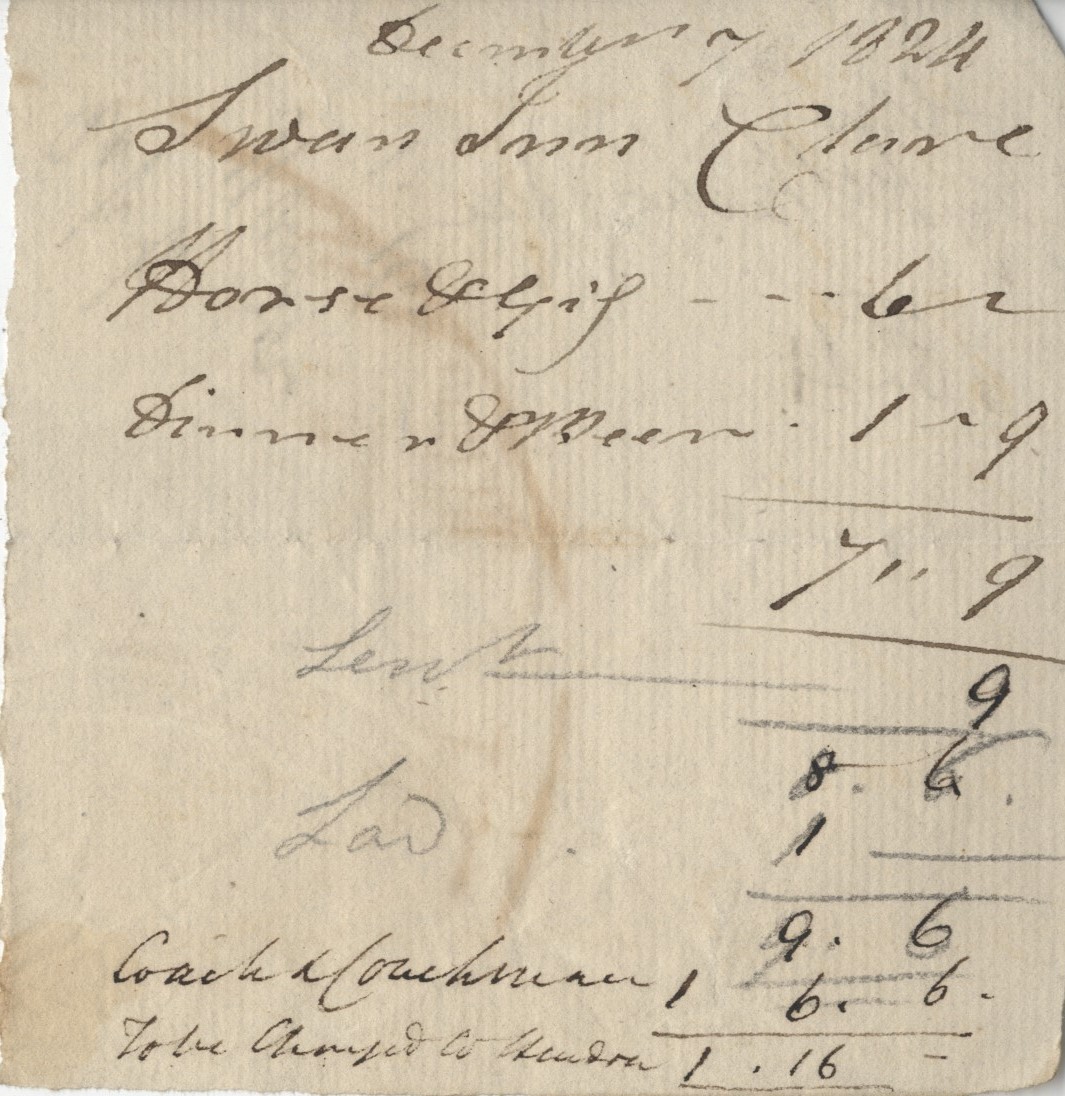 December 7 1824
Swan Inn Clare
Horse & Gig - - - 6 ~
Dinner & Beer . 1 ~ 9
7 ,, 9
9
8 . 6 .
Lad . 1 —
9 . 6
Coach & Coachman 1 6 . 6 .
To be Charged to 1 . 16 –